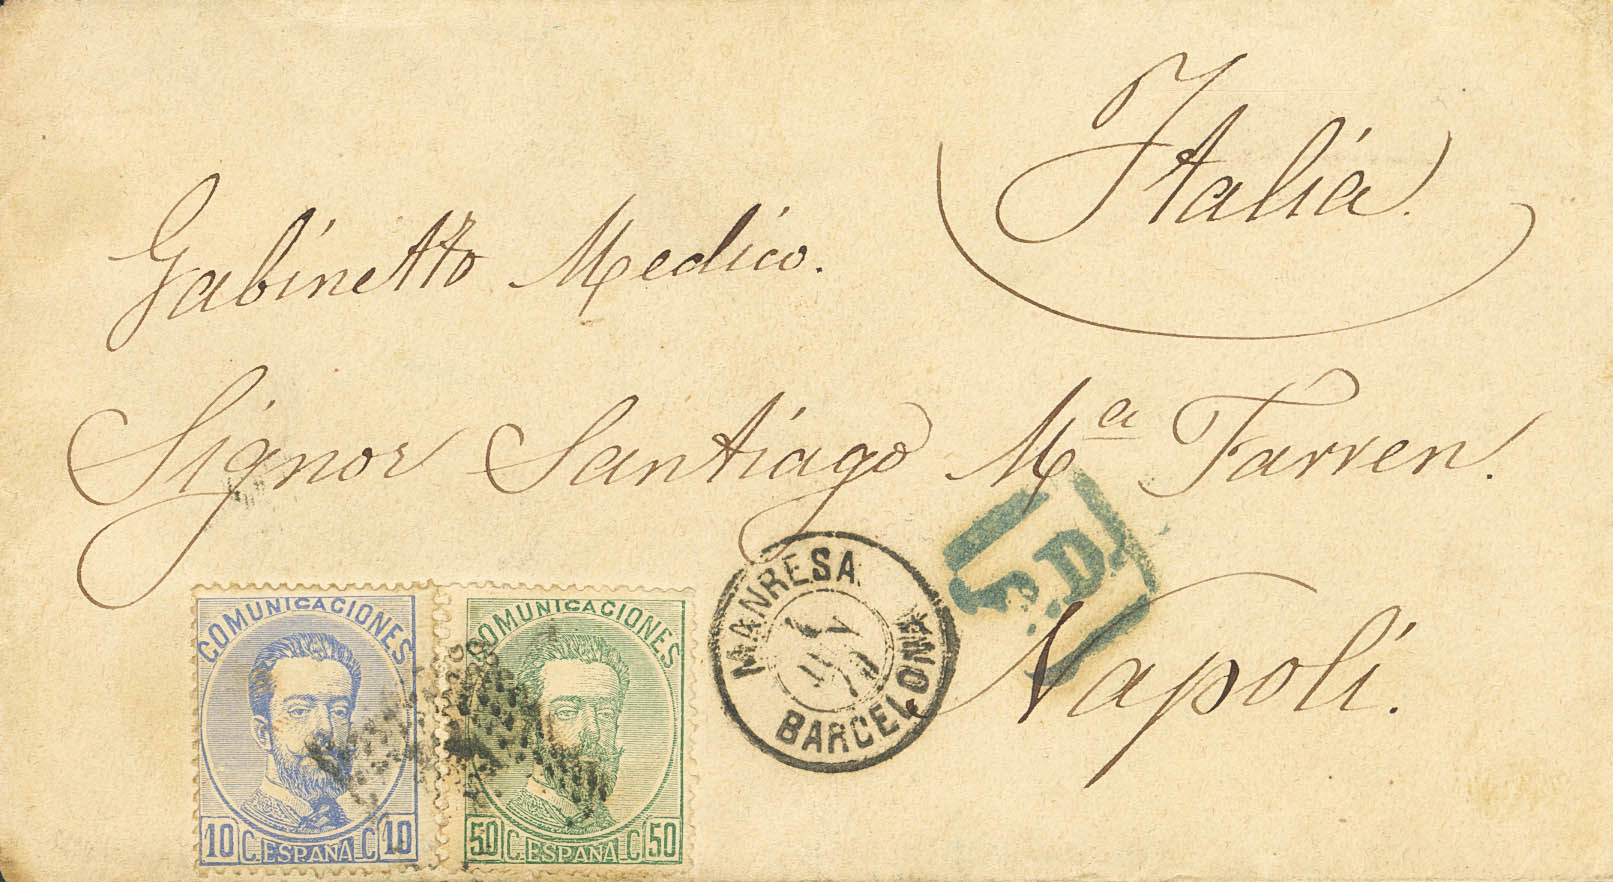 Italia.
Gabinetto Medico.
Signor Santiago Mª Farren.
Napoli.
P.D.
MANRESA
BARCELONA
COMUNICACIONES
10 C. ESPAÑA C 10
COMUNICACIONES
50 C. ESPAÑA C 50